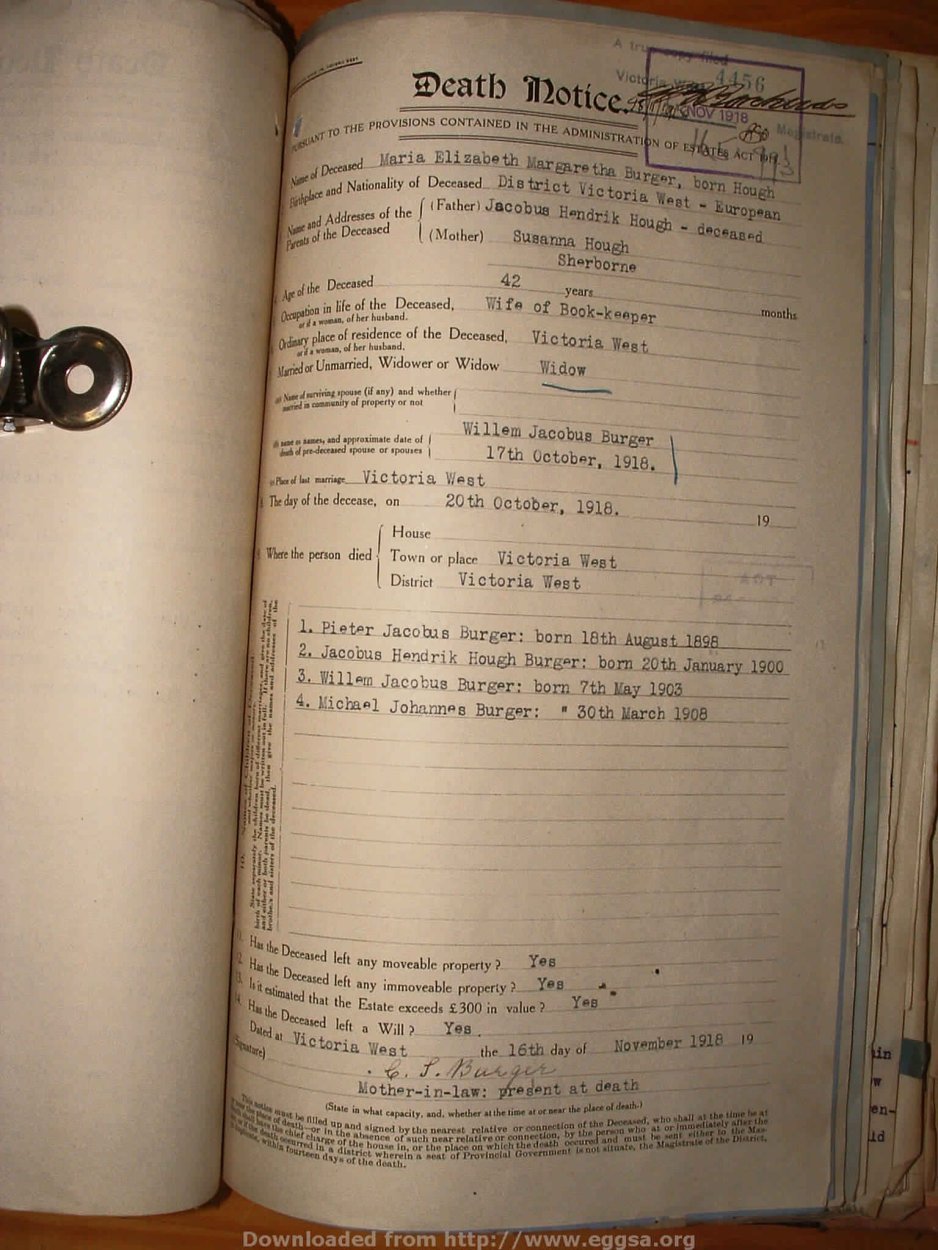 A true copy filed
4456
Victoria West
NOV 1918
Magistrate.
Death Notice.
PURSUANT TO THE PROVISIONS CONTAINED IN THE ADMINISTRATION OF ESTATES ACT
Name of Deceased Maria Elizabeth Margaretha Burger, born Hough
Birthplace and Nationality of Deceased District Victoria West - European
Name and Addresses of the Parents of the Deceased
(Father) Jacobus Hendrik Hough - deceased
(Mother) Susanna Hough
Sherborne
Age of the Deceased 42 years months
Occupation in life of the Deceased, Wife of Book-keeper
or if a woman, of her husband.
Ordinary place of residence of the Deceased, Victoria West
or if a woman, of her husband.
Married or Unmarried, Widower or Widow Widow
(a) Name of surviving spouse (if any) and whether
married in community of property or not
(b) name or names, and approximate date of Willem Jacobus Burger
death of pre-deceased spouse or spouses 17th October, 1918.
(c) Place of last marriage Victoria West
The day of the decease, on 20th October, 1918. 19
Where the person died
House
Town or place Victoria West
District Victoria West
1. Pieter Jacobus Burger: born 18th August 1898
2. Jacobus Hendrik Hough Burger: born 20th January 1900
3. Willem Jacobus Burger: born 7th May 1903
4. Michael Johannes Burger: " 30th March 1908
10. Names of Children of Deceased,
State separately the children born of different marriages, and give the date of
birth of each minor. Names must be written out in full. If there are no children,
and either or both parents be dead, then give the names and addresses of the
brothers and sisters of the deceased.
11. Has the Deceased left any moveable property? Yes
12. Has the Deceased left any immoveable property? Yes
13. Is it estimated that the Estate exceeds £300 in value? Yes
14. Has the Deceased left a Will? Yes.
Dated at Victoria West the 16th day of November 1918 19
(Signature) C. S. Burger
Mother-in-law: present at death
(State in what capacity, and, whether at the time at or near the place of death.)
This notice must be filled up and signed by the nearest relative or connection of the Deceased, who shall at the time be at
or near the place of death—or in the absence of such near relative or connection, by the person who at or immediately after the
death shall have the chief charge of the house in, or the place on which the death occured and must be sent either to the Mas-
death occurred in a district wherein a seat of Provincial Government is not situate, the Magistrate of the District,
within fourteen days of the death.
Downloaded from http://www.eggsa.org